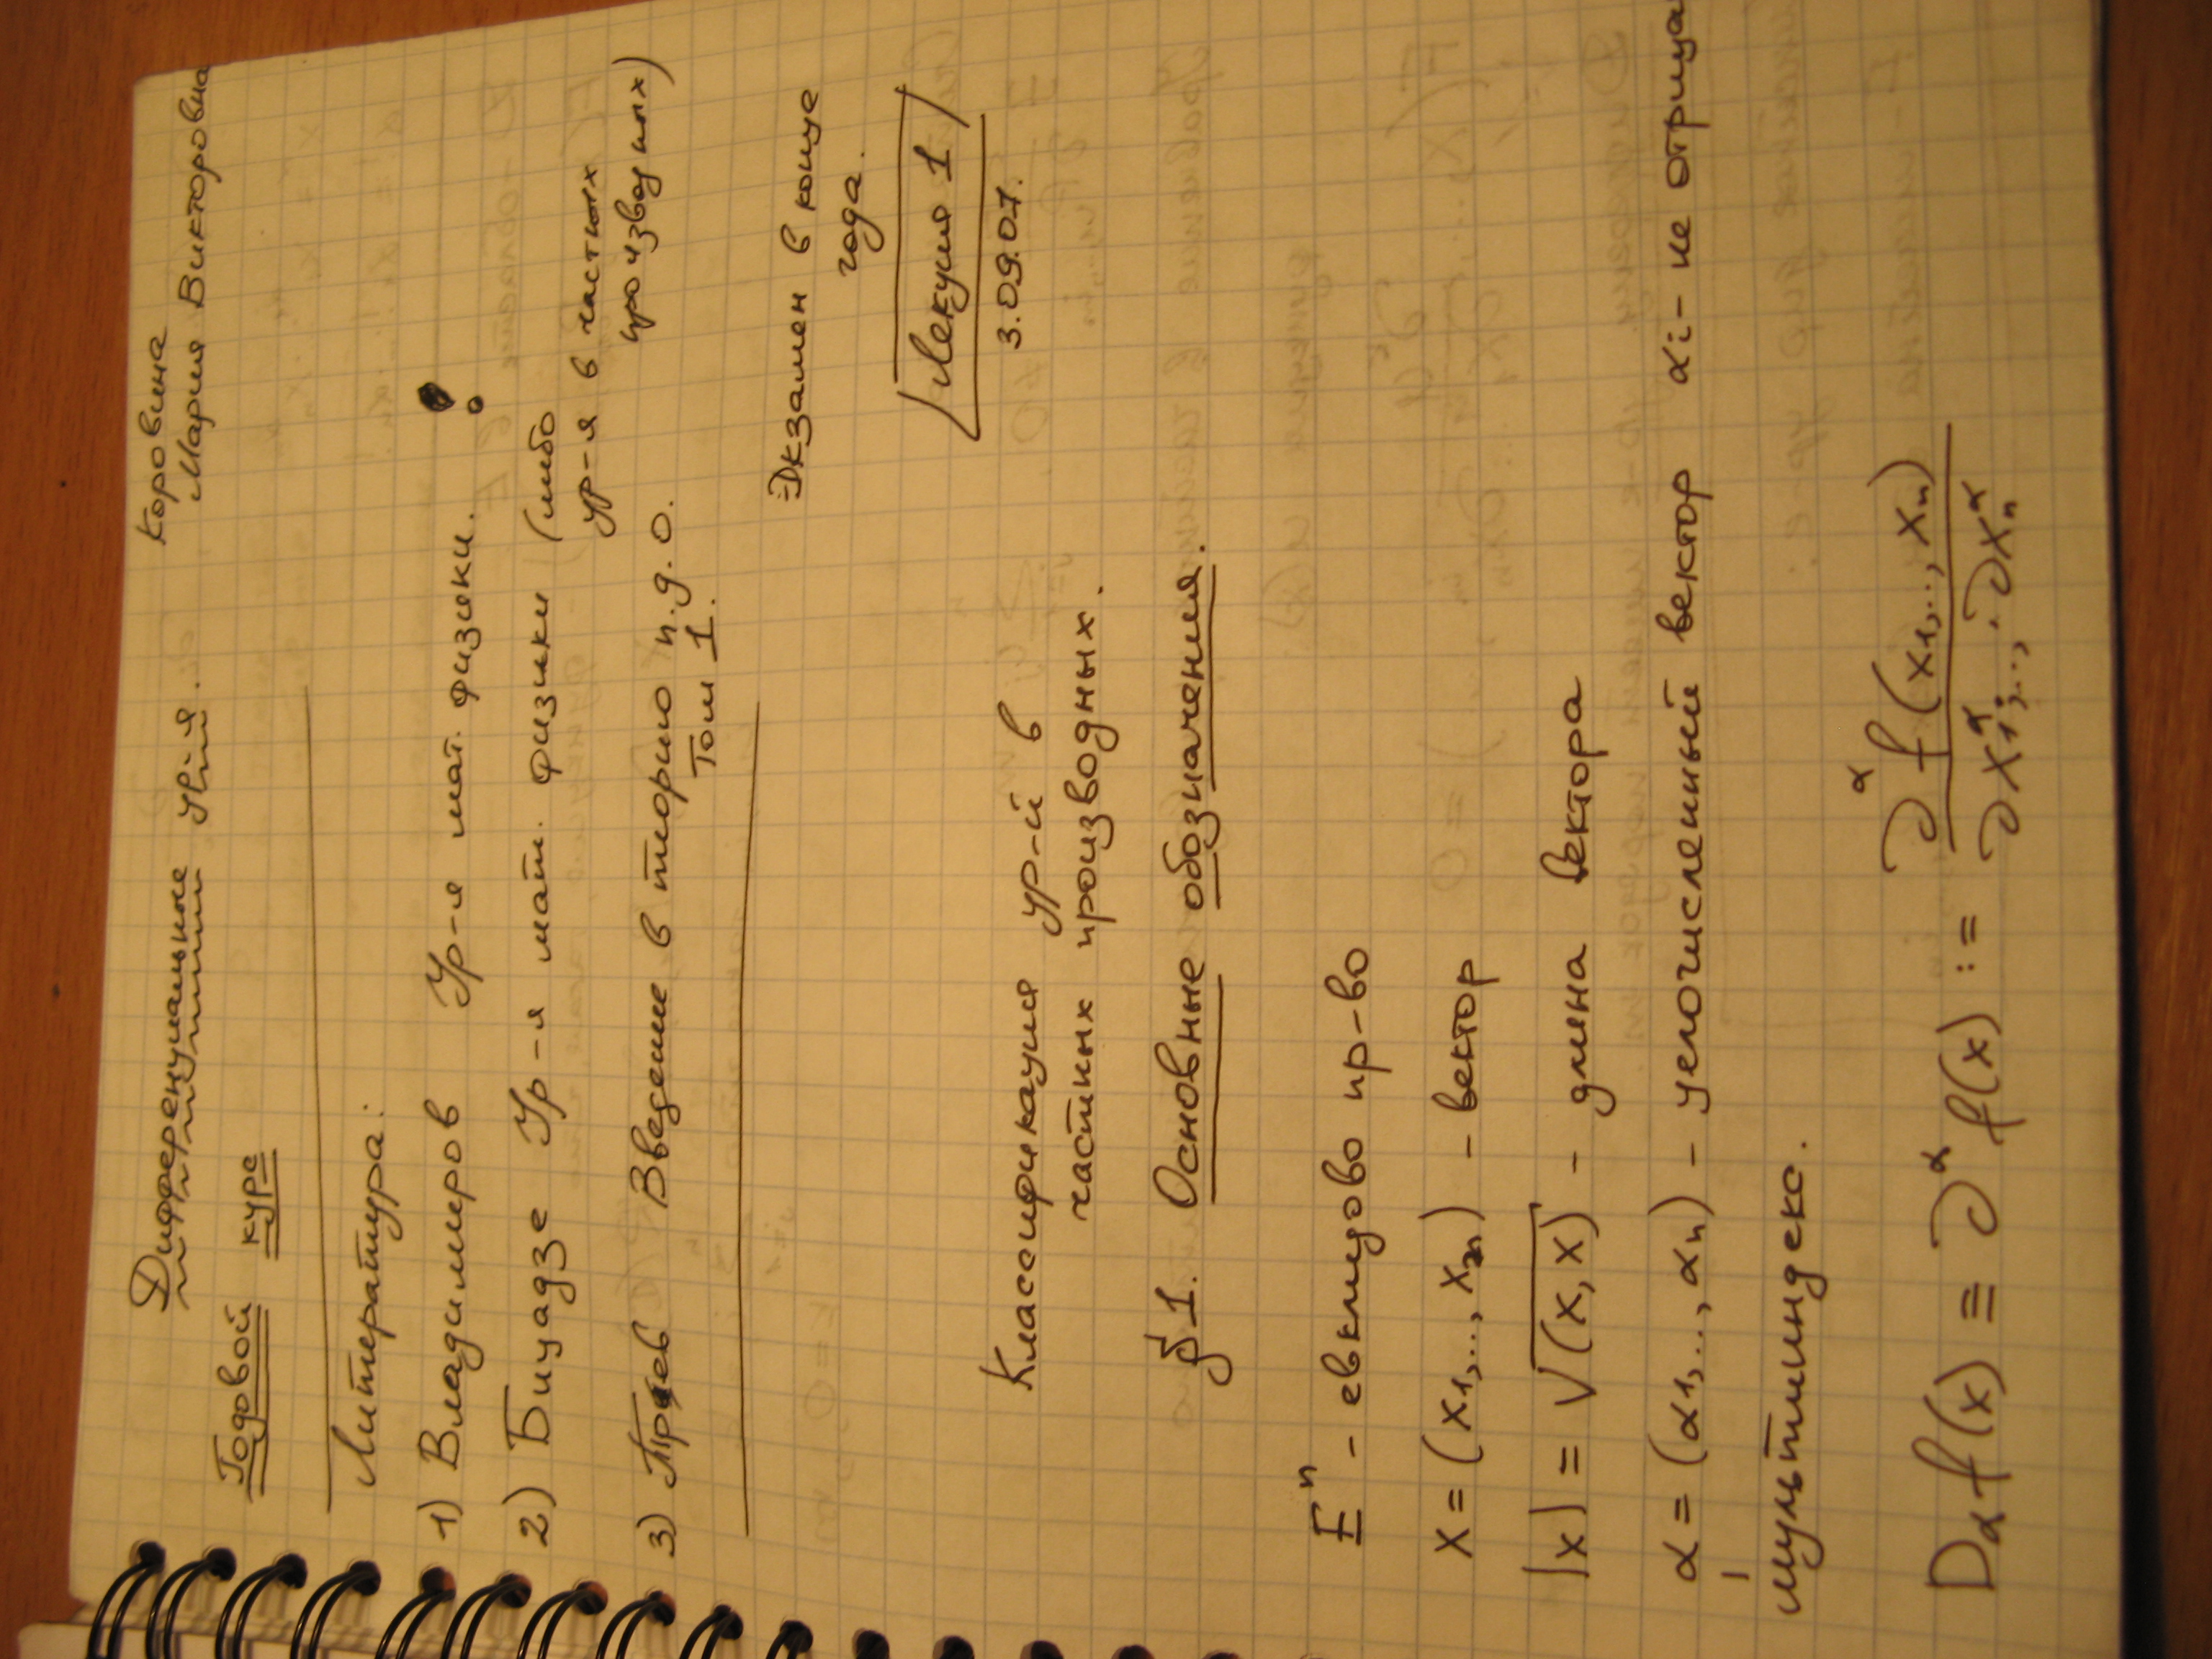 Коровина
Мария Викторовна
Дифференциальные ур-ия.
Годовой курс
Литература:
1) Владимиров Ур-я мат. физики.
2) Бицадзе Ур-я мат. физики (либо
ур-я в частных
производных)
3) Введение в теорию п.д.о.
Том 1.
Экзамен в конце
года.
Лекция 1
3.09.07.
Классификация ур-й в
частных производных.
§1. Основные обозначения.
Eⁿ - евклидово пр-во
x = (x₁,..., xₙ) - вектор
|x| = √(x,x) - длина вектора
α = (α₁,..., αₙ) - целочисленный вектор αᵢ - не отрица
- мультииндекс.
D_α f(x) ≡ ∂^α f(x) := ∂^α f(x₁,..., xₙ) / ∂x₁^α,..., ∂xₙ^α